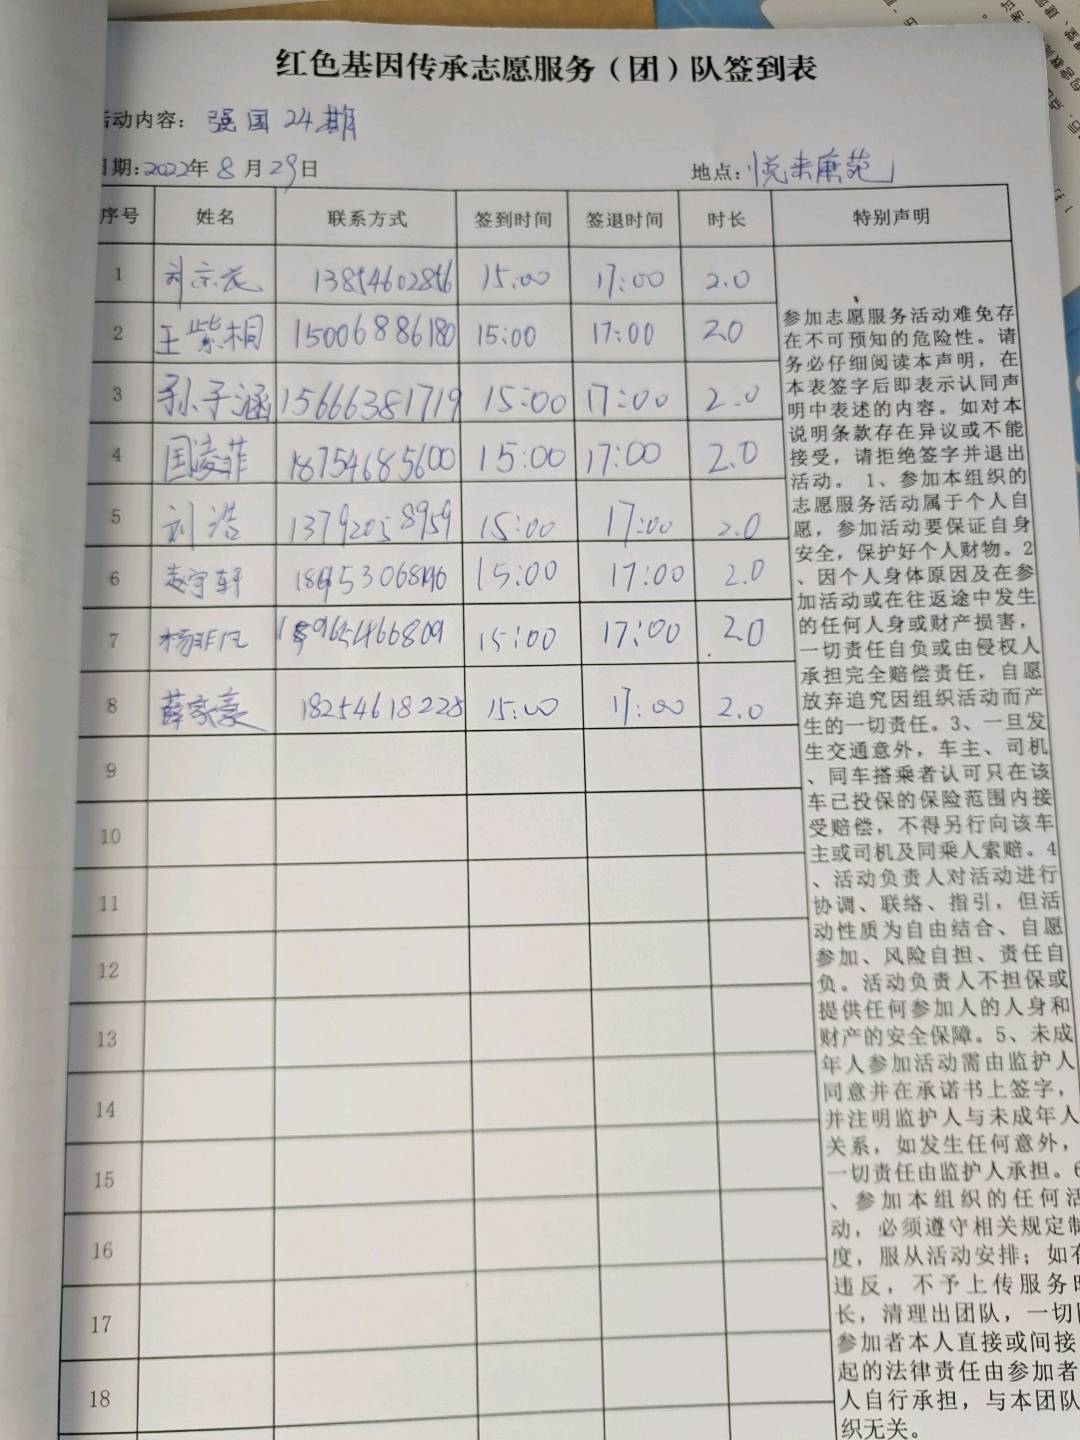 红色基因传承志愿服务（团）队签到表
活动内容： 强国24期
日期：2022年8月29日 地点：悦来康苑
序号 姓名 联系方式 签到时间 签退时间 时长 特别声明
1 刘宗 13854602856 15:00 17:00 2.0
2 王紫桐 15006886180 15:00 17:00 2.0
3 孙子涵 15666381719 15:00 17:00 2.0
4 国凌菲 18754685600 15:00 17:00 2.0
5 刘浩 13792058959 15:00 17:00 2.0
6 赵宇轩 15:00 17:00 2.0
7 杨非凡 15:00 17:00 2.0
8 薛家豪 18254618228 15:00 17:00 2.0
9
10
11
12
13
14
15
16
17
18
参加志愿服务活动难免存
在不可预知的危险性。请
务必仔细阅读本声明，在
本表签字后即表示认同声
明中表述的内容。如对本
说明条款存在异议或不能
接受，请拒绝签字并退出
活动。 1、参加本组织的
志愿服务活动属于个人自
愿，参加活动要保证自身
安全，保护好个人财物。2
、因个人身体原因及在参
加活动或在往返途中发生
的任何人身或财产损害，
一切责任自负或由侵权人
承担完全赔偿责任，自愿
放弃追究因组织活动而产
生的一切责任。3、一旦发
生交通意外，车主、司机
、同车搭乘者认可只在该
车已投保的保险范围内接
受赔偿，不得另行向该车
主或司机及同乘人索赔。4
、活动负责人对活动进行
协调、联络、指引，但活
动性质为自由结合、自愿
参加、风险自担、责任自
负。活动负责人不担保或
提供任何参加人的人身和
财产的安全保障。5、未成
年人参加活动需由监护人
同意并在承诺书上签字，
并注明监护人与未成年人
关系，如发生任何意外，
一切责任由监护人承担。6
、参加本组织的任何活
动，必须遵守相关规定制
度，服从活动安排；如有
违反，不予上传服务时
长，清理出团队，一切因
参加者本人直接或间接
起的法律责任由参加者
人自行承担，与本团队
织无关。